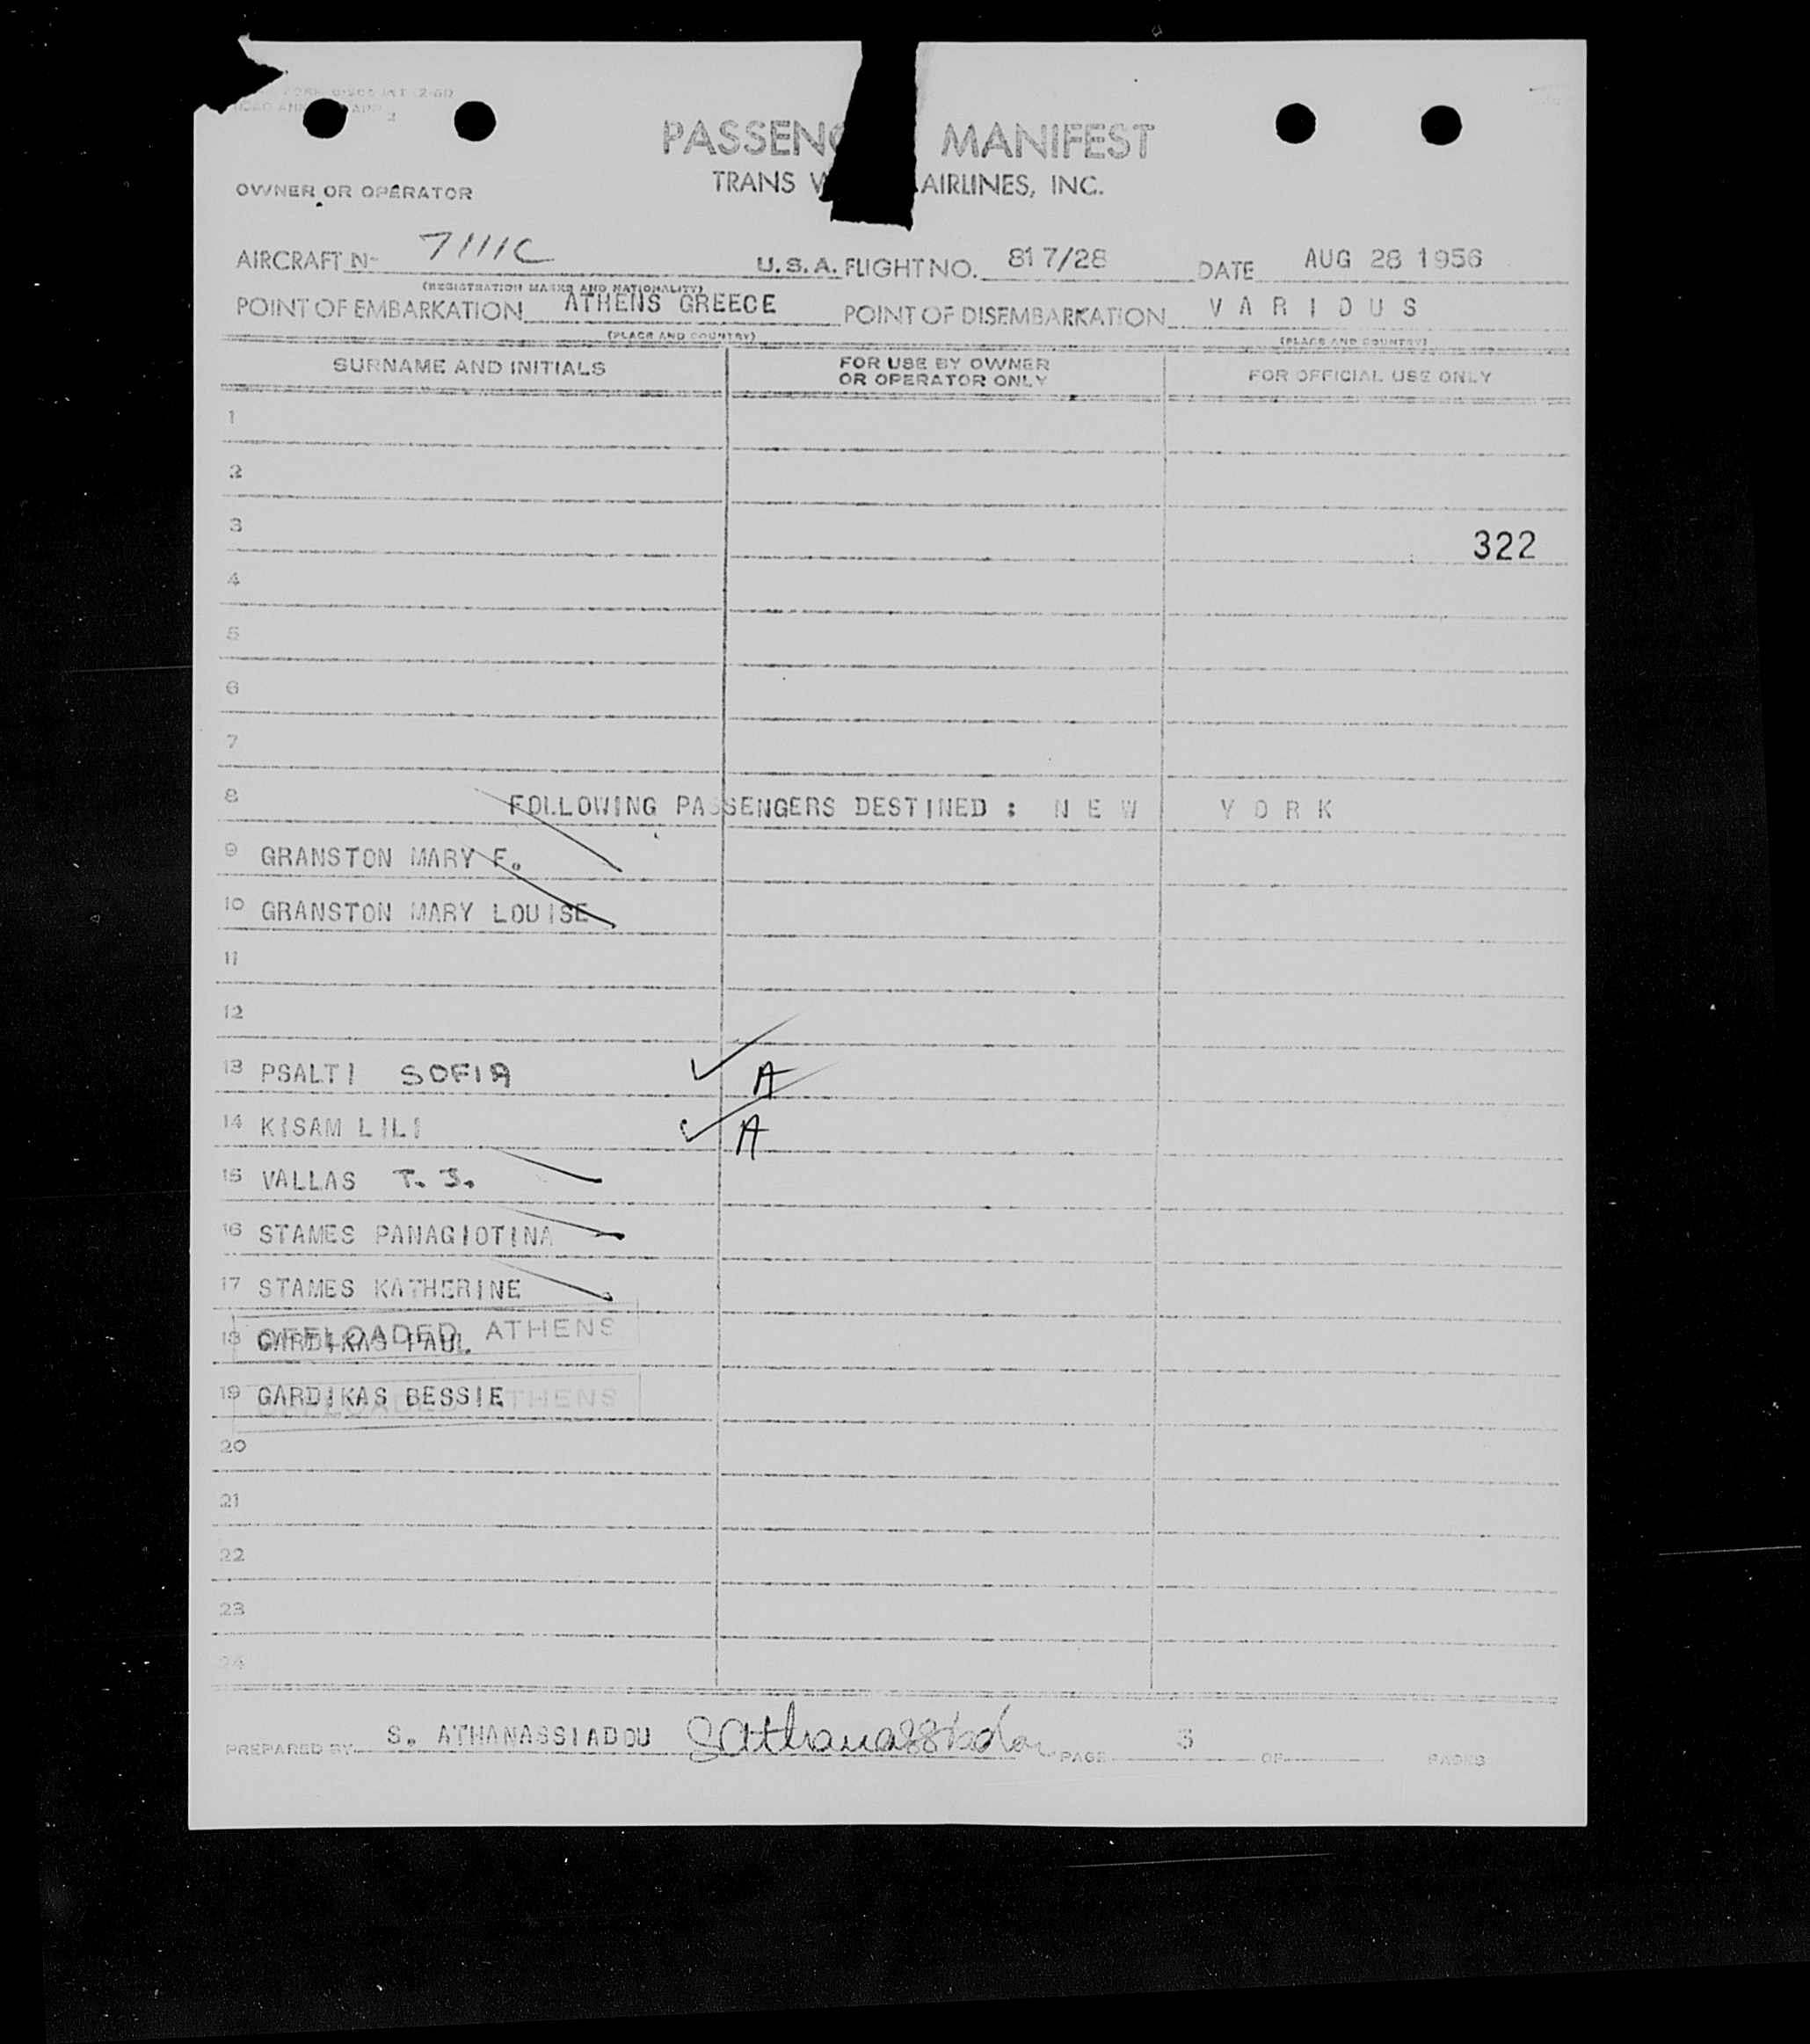 PASSENG MANIFEST
TRANS W AIRLINES, INC.
OWNER OR OPERATOR
AIRCRAFT Nº 7111C U.S.A. FLIGHT NO. 817/28 DATE AUG 28 1956
(REGISTRATION MARKS AND NATIONALITY)
POINT OF EMBARKATION ATHENS GREECE POINT OF DISEMBARKATION V A R I O U S
(PLACE AND COUNTRY) (PLACE AND COUNTRY)
SURNAME AND INITIALS FOR USE BY OWNER OR OPERATOR ONLY FOR OFFICIAL USE ONLY
1
2
3 322
4
5
6
7
8 FOLLOWING PASSENGERS DESTINED : N E W Y O R K
9 GRANSTON MARY F.
10 GRANSTON MARY LOUISE
11
12
13 PSALTI SOFIA A
14 KISAM LILI A
15 VALLAS T. J.
16 STAMES PANAGIOTINA
17 STAMES KATHERINE
OFFLOADED ATHENS
18 GARDIKAS PAUL
19 GARDIKAS BESSIE
OFFLOADED ATHENS
20
21
22
23
24
PREPARED BY S. ATHANASSIADOU SAthanassiadou PAGE 3 OF PAGES